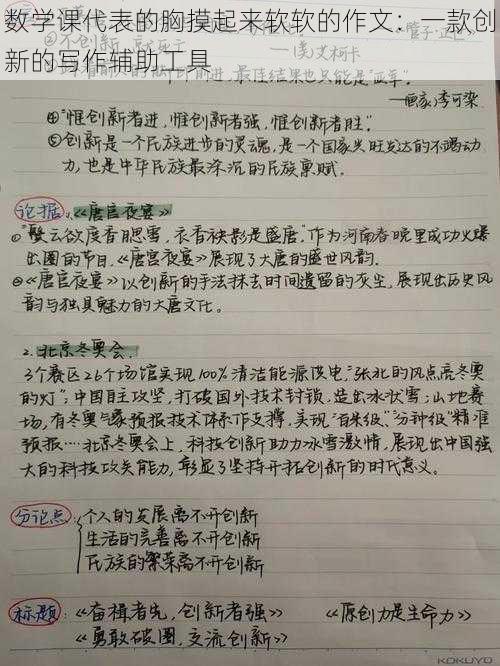 数学课代表的胸摸起来软软的作文：一款创
新的写作辅助工具
——管子·正世
②不创新，就死亡
——艾柯卡
最佳结果也只能是亚军。
——画家李可染
④“惟创新者进，惟创新者强，惟创新者胜。”
⑤创新是一个民族进步的灵魂，是一个国家兴旺发达的不竭动
力，也是中华民族最深沉的民族禀赋。
论据：1.《唐宫夜宴》
①“鬓云欲度香腮雪，衣香袂影是盛唐”。作为河南春晚里成功火爆
出圈的节目，《唐宫夜宴》展现了大唐的盛世风韵。
②《唐宫夜宴》以创新的手法抹去时间遗留的灰尘，展现出历史风
韵与独具魅力的大唐文化。
2. 北京冬奥会.
3个赛区26个场馆实现100%清洁能源供电，“张北的风点亮冬奥
的灯”；中国自主攻坚，打破国外技术封锁，造出冰状雪；山地赛
场，有冬奥气象预报技术体系作支撑，实现“百米级”“分钟级”精准
预报……北京冬奥会上，科技创新助力冰雪激情，展现出中国强
大的科技攻关能力，彰显了坚持开拓创新的时代意义。
分论点：个人的发展离不开创新
生活的完善离不开创新
民族的繁荣离不开创新
标题：《奋楫者先，创新者强》 《原创力是生命力》
《勇敢破圈，交流创新》
KOKUYO